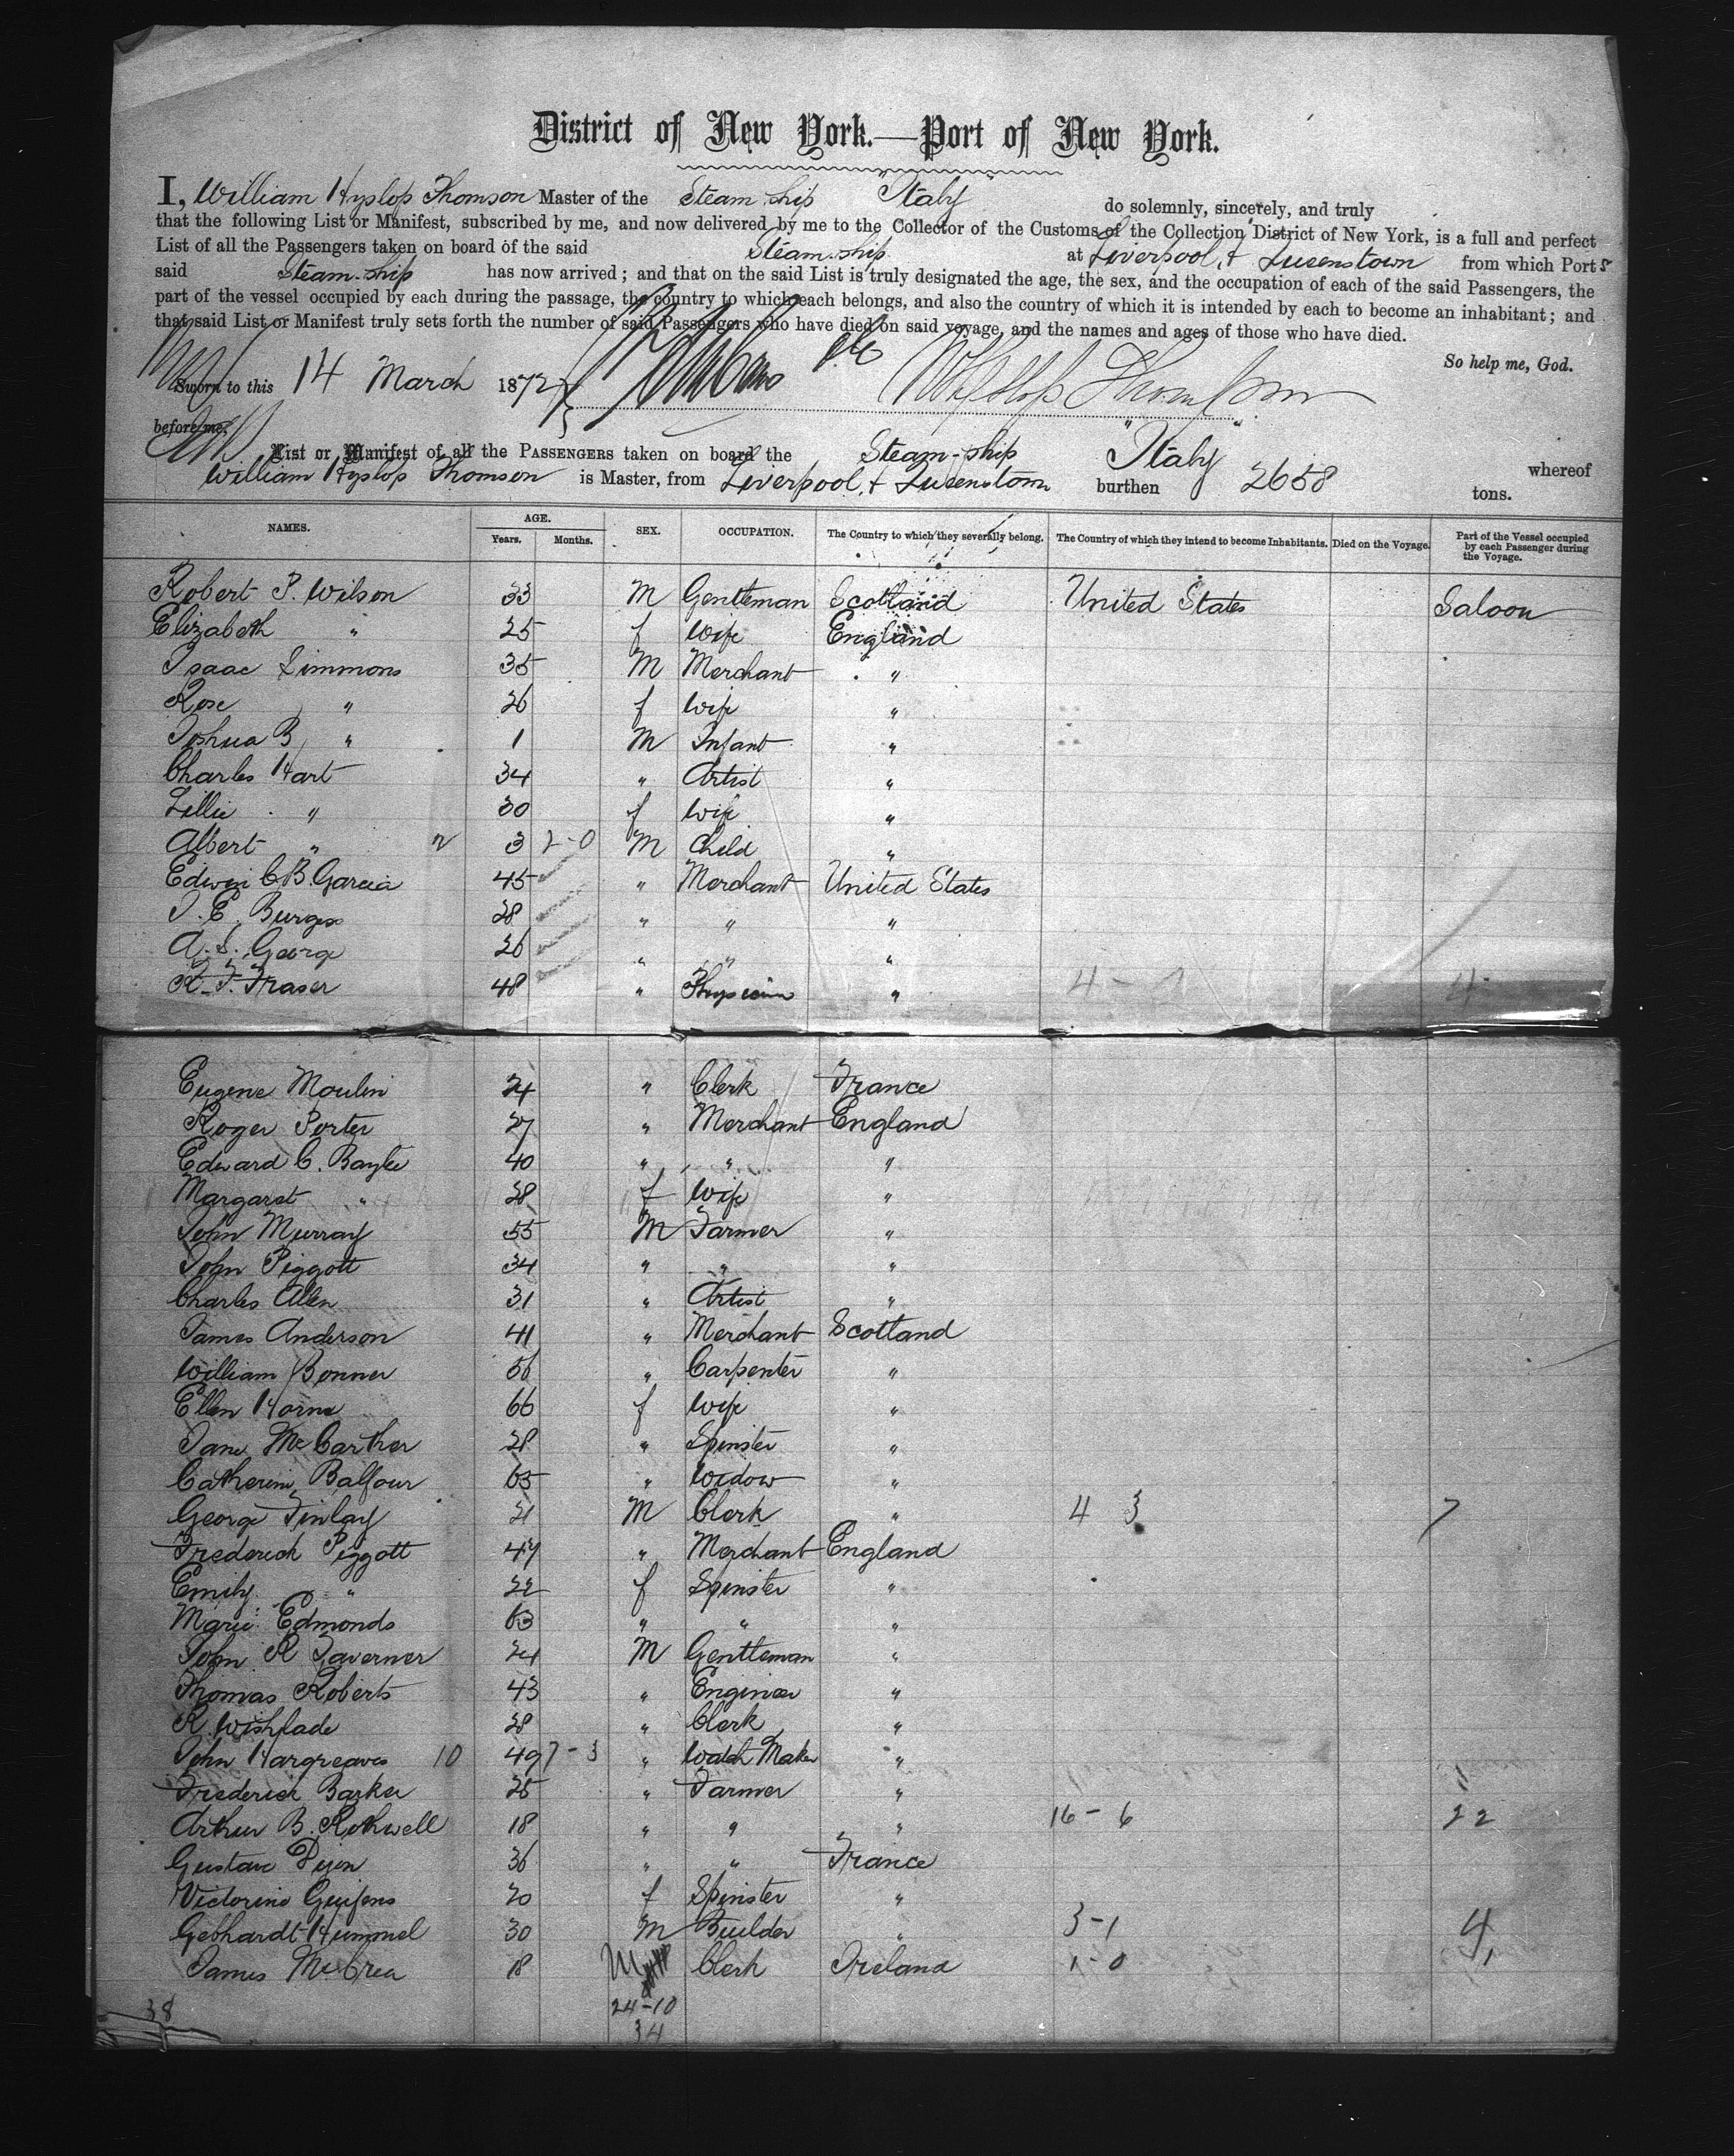 District of New York.—Port of New York.
I, William Hyslop Thomson Master of the Steam ship "Italy" do solemnly, sincerely, and truly
that the following List or Manifest, subscribed by me, and now delivered by me to the Collector of the Customs of the Collection District of New York, is a full and perfect
List of all the Passengers taken on board of the said Steam-ship at Liverpool, & Queenstown from which Ports
said Steam-ship has now arrived; and that on the said List is truly designated the age, the sex, and the occupation of each of the said Passengers, the
part of the vessel occupied by each during the passage, the country to which each belongs, and also the country of which it is intended by each to become an inhabitant; and
that said List or Manifest truly sets forth the number of said Passengers who have died on said voyage, and the names and ages of those who have died.
So help me, God.
Sworn to this 14 March 1872 } WHyslop Thomson
before me.
List or Manifest of all the PASSENGERS taken on board the Steam-ship "Italy" whereof
William Hyslop Thomson is Master, from Liverpool, & Queenstown burthen 2658 tons.
NAMES. AGE. SEX. OCCUPATION. The Country to which they severally belong. The Country of which they intend to become Inhabitants. Died on the Voyage. Part of the Vessel occupied by each Passenger during the Voyage.
Years. Months.
Robert P. Wilson 33 M Gentleman Scotland United States Saloon
Elizabeth " 25 f Wife England
Isaac Simmons 35 M Merchant "
Rose " 26 f Wife "
Joshua B " 1 M Infant "
Charles Hart 34 " Artist "
Lillie " 30 f Wife "
Albert " 2 3 2-0 M Child "
Edwin C.B. Garcia 45 " Merchant United States
T. E. Burgess 28 " " "
A. S. George 26 " " "
R. F. Fraser 48 " Physician " 4 - 4
Eugene Moulin 24 " Clerk France
Roger Porter 27 " Merchant England
Edward C. Baylie 40 " " "
Margaret " 28 f Wife "
John Murray 55 M Farmer "
John Piggott 34 " " "
Charles Allen 31 " Artist "
James Anderson 41 " Merchant Scotland
William Bonner 56 " Carpenter "
Ellen Horne 66 f Wife "
Jane McCarther 28 " Spinster "
Catherine Balfour 65 " Widow "
George Finlay 21 M Clerk " 4 3 7
Frederick Piggott 47 " Merchant England
Emily " 22 f Spinster "
Marie Edmonds 63 " " "
John R Taverner 24 M Gentleman "
Thomas Roberts 43 " Engineer "
R. Wishlade 28 " Clerk "
John Hargreaves 10 49 7-3 " Watch Maker "
Frederick Barker 25 " Farmer "
Arthur B. Rothwell 18 " " " 16 - 6 22
Gustave 36 " " France
Victorine 20 f Spinster "
Gebhardt Hummel 30 M Builder " 3-1 4
James McCrea 18 M Clerk Ireland 1-0 1
38 24-10
34